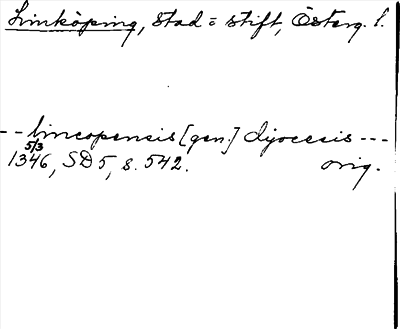 Linköping, stad = stift, Österg. l.
-- lincopensis [gen.] dyocesis ---
5/3
1346, SD 5, s. 542. orig.